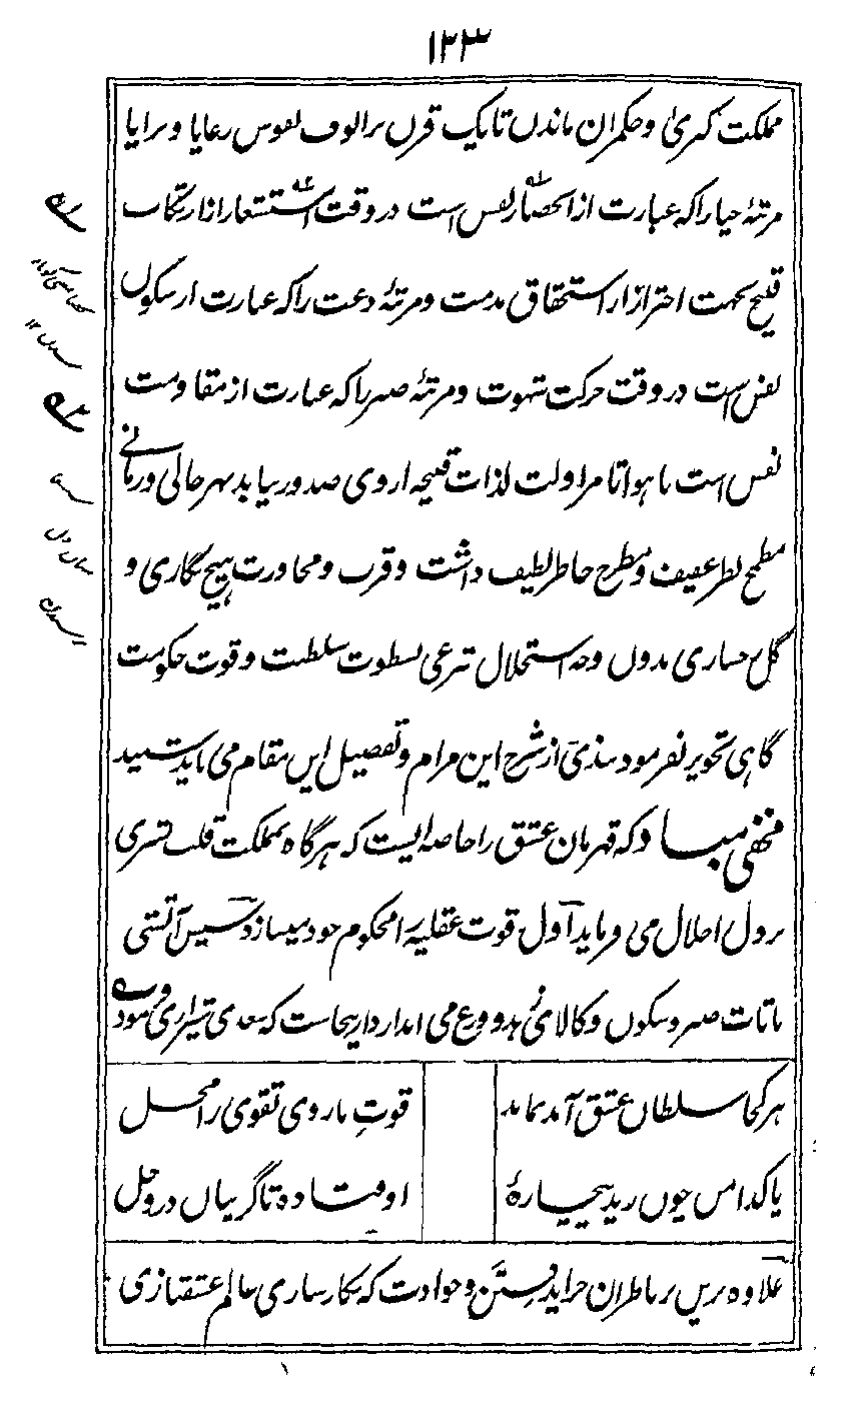 ۱۲۳
مملکت کبری و حکمران ماندن تا یک قرن بر الوف نفوس رعایا و برایا
مرتبۀ حیا را که عبارت از انحصار نفس است در وقت استشعار از ارتکاب
قبیح بجهت احتراز از استحقاق مذمت و مرتبۀ دعت را که عبارت از سکون
نفس است در وقت حرکت شهوت و مرتبۀ صبر را که عبارت از مقاومت
نفس است با هوا تا مزاولت لذات قبیحه از وی صدور نیابد بهر حالی و زمانی
مطمح نظر عفیف و مطرح خاطر لطیف داشت و قرب و مجاورت هیچ نگاری و
گل رخساری بدون وجه استحلال شرعی بسطوت سلطنت و قوت حکومت
گاهی تجویز نفرمود نبذی از شرح این مرام و تفصیل این مقام می باید شنید
مخفی مبـاد که قهرمان عشق را خاصه ایست که هرگاه بمملکت قلب بشری
نزول اجلال می فرماید اول قوت عقلیه را محکوم خود میسازد سپس آتشی
باثاث صبر و سکون و کالای زهد و ورع می اندازد ازینجاست که سعدی شیرازی فرموده
هر کجا سلطان عشق آمد نماند
قوتِ بازوی تقوی را محل
پاکدامن چون زید بیچارۀ
اوفتاده تا گریبان در وحل
علاوه برین بر ناظران جراید فتن و حوادث که بکارسازی عالم عشقبازی